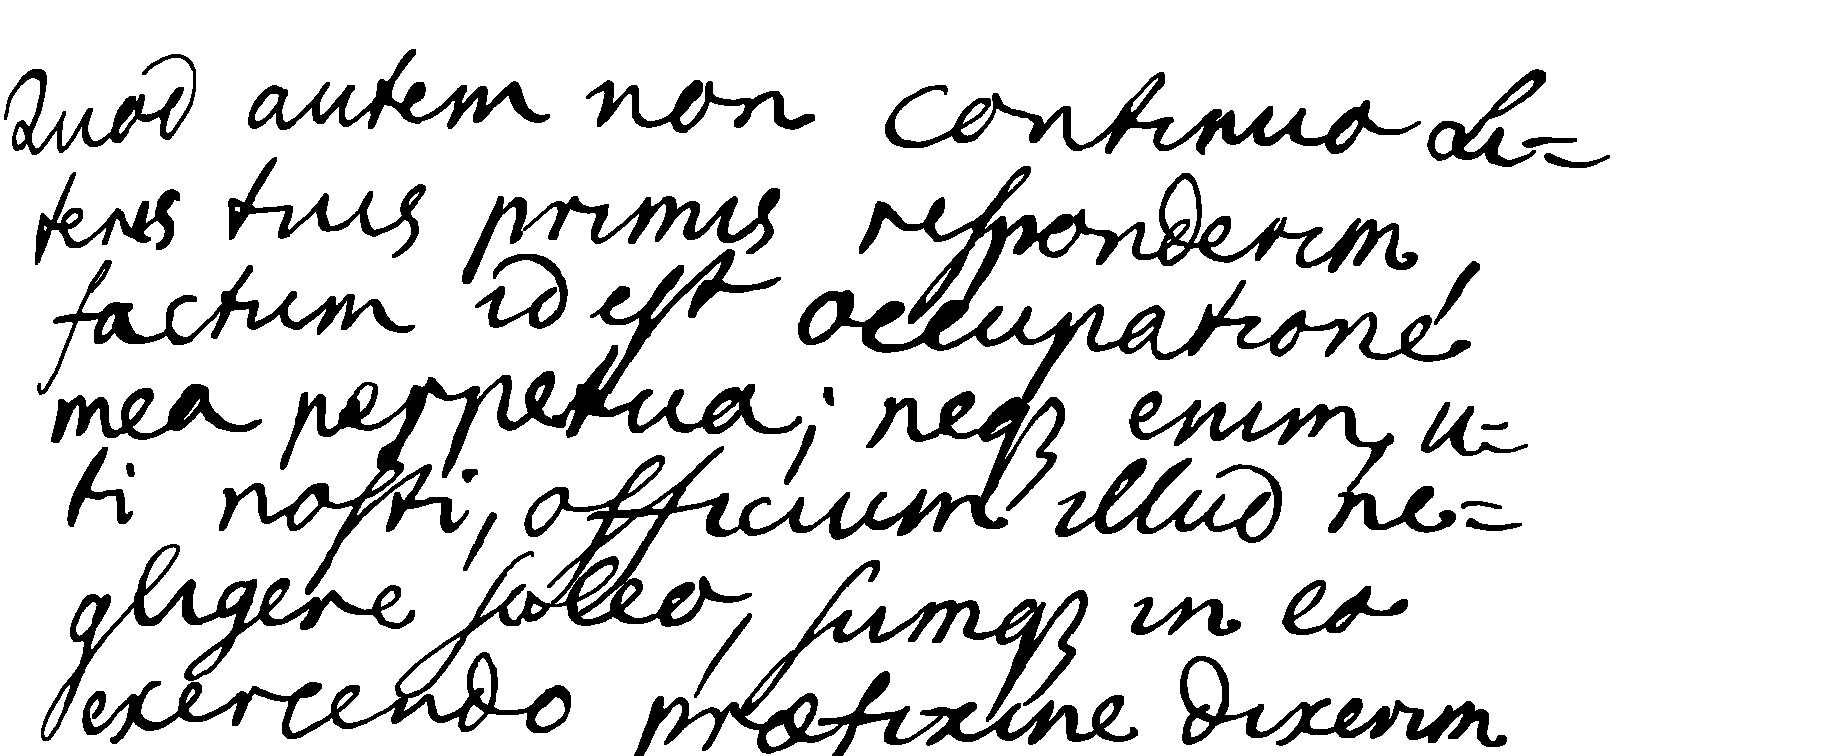 Quod autem non continuo Li=
teris tuis primis responderim,
factum id est occupationé
mea perpetua; neqꝫ enim, u=
ti nosti, officium illud ne=
gligere soleo, sumqꝫ in eo
exercendo præfixine dixerim